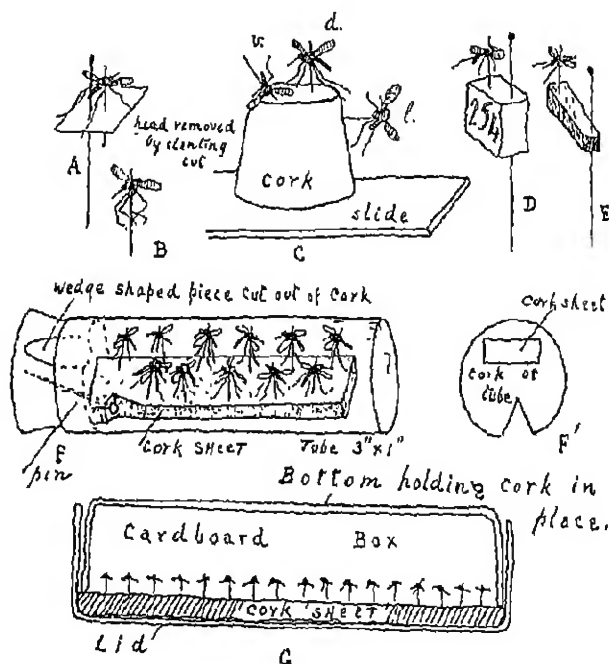 v.
d.
l.
head removed
by slanting
cut
cork
slide
254
A
B
C
D
E
wedge shaped piece cut out of cork
F
pin
CORK SHEET
Tube 3"x1"
cork sheet
cork of
tube
F'
Bottom holding cork in
place.
Cardboard Box
CORK SHEET
Lid
G